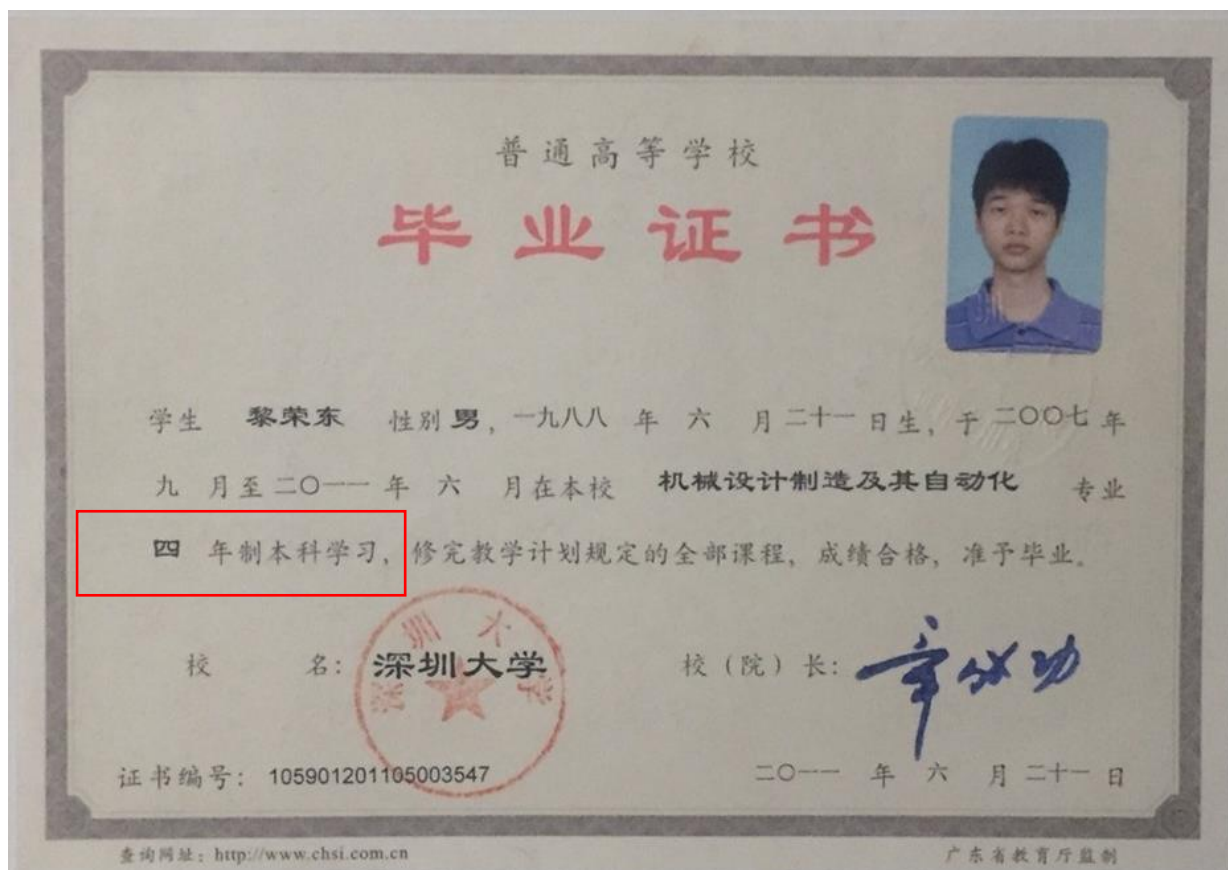 普通高等学校
毕业证书
学生 黎荣东 性别 男, 一九八八 年 六 月 二十一 日生, 于 二〇〇七 年
九 月至 二〇一一 年 六 月在本校 机械设计制造及其自动化 专业
四 年制本科学习, 修完教学计划规定的全部课程, 成绩合格, 准予毕业。
深圳大学
校 名: 深圳大学 校(院)长: 章必功
证书编号: 105901201105003547 二〇一一 年 六 月 二十一 日
查询网址: http://www.chsi.com.cn 广东省教育厅监制